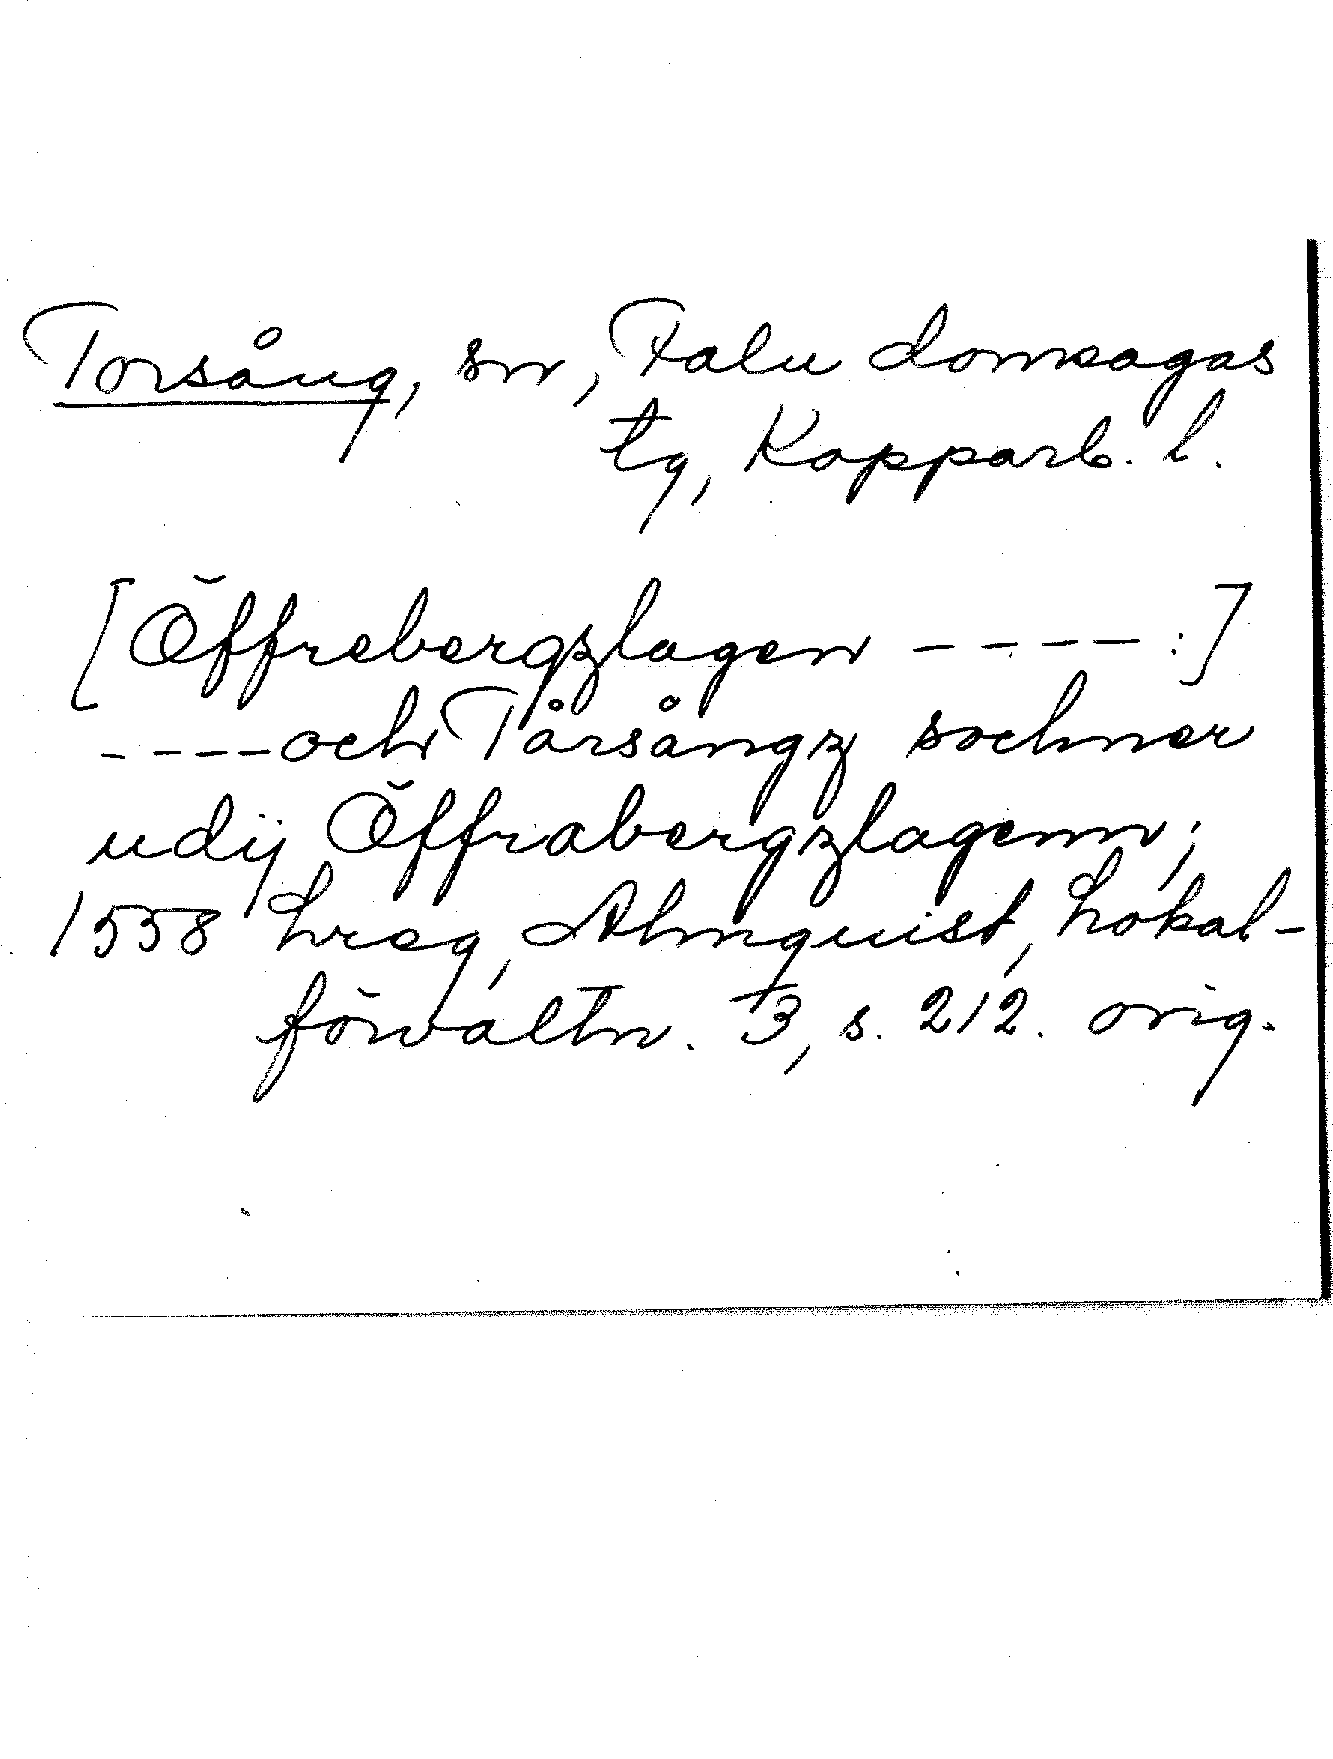 Torsång, sn, Falu domsagas
tg, Kopparb. l.
[Öffrebergzlagen ----:]
----och Tårsångz sochner
udij Öffrabergzlagenn;
1558 Lreg, Almquist, Lokal-
förvaltn. 3, s. 212. orig.